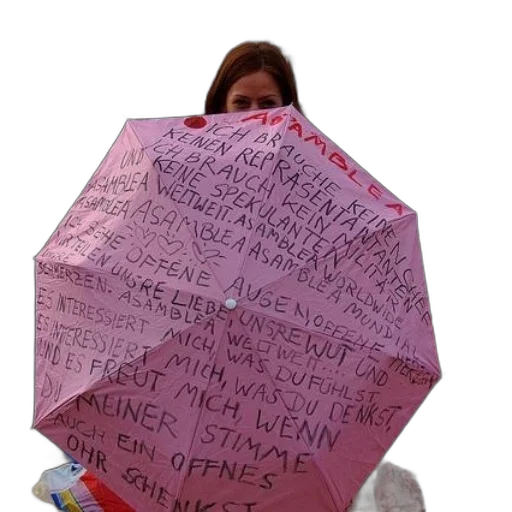 ASAMBLEA
ICH BRAUCHE KEINE
KEINEN REPRÄSENTANTEN
UND ICH BRAUCH KEIN MILITÄR
KENE SPEKULANTEN
ASAMBLEA WELTWEIT ASAMBLEA WORLDWIDE
ASAMBLEA ASAMBLEA ASAMBLEA MUNDIAL
ICH SEHE OFFENE AUGEN OFFENE HERZEN
WIR TEILEN UNSRE LIEBE, UNSRE WUT UND
SCHMERZEN. ASAMBLEA WELTWEIT...
ES INTERESSIERT MICH, WAS DU FÜHLST,
ES INTERESSIERT MICH, WAS DU DENKST,
UND ES FREUT MICH, WENN
DU MEINER STIMME
AUCH EIN OFFNES
OHR SCHENKST